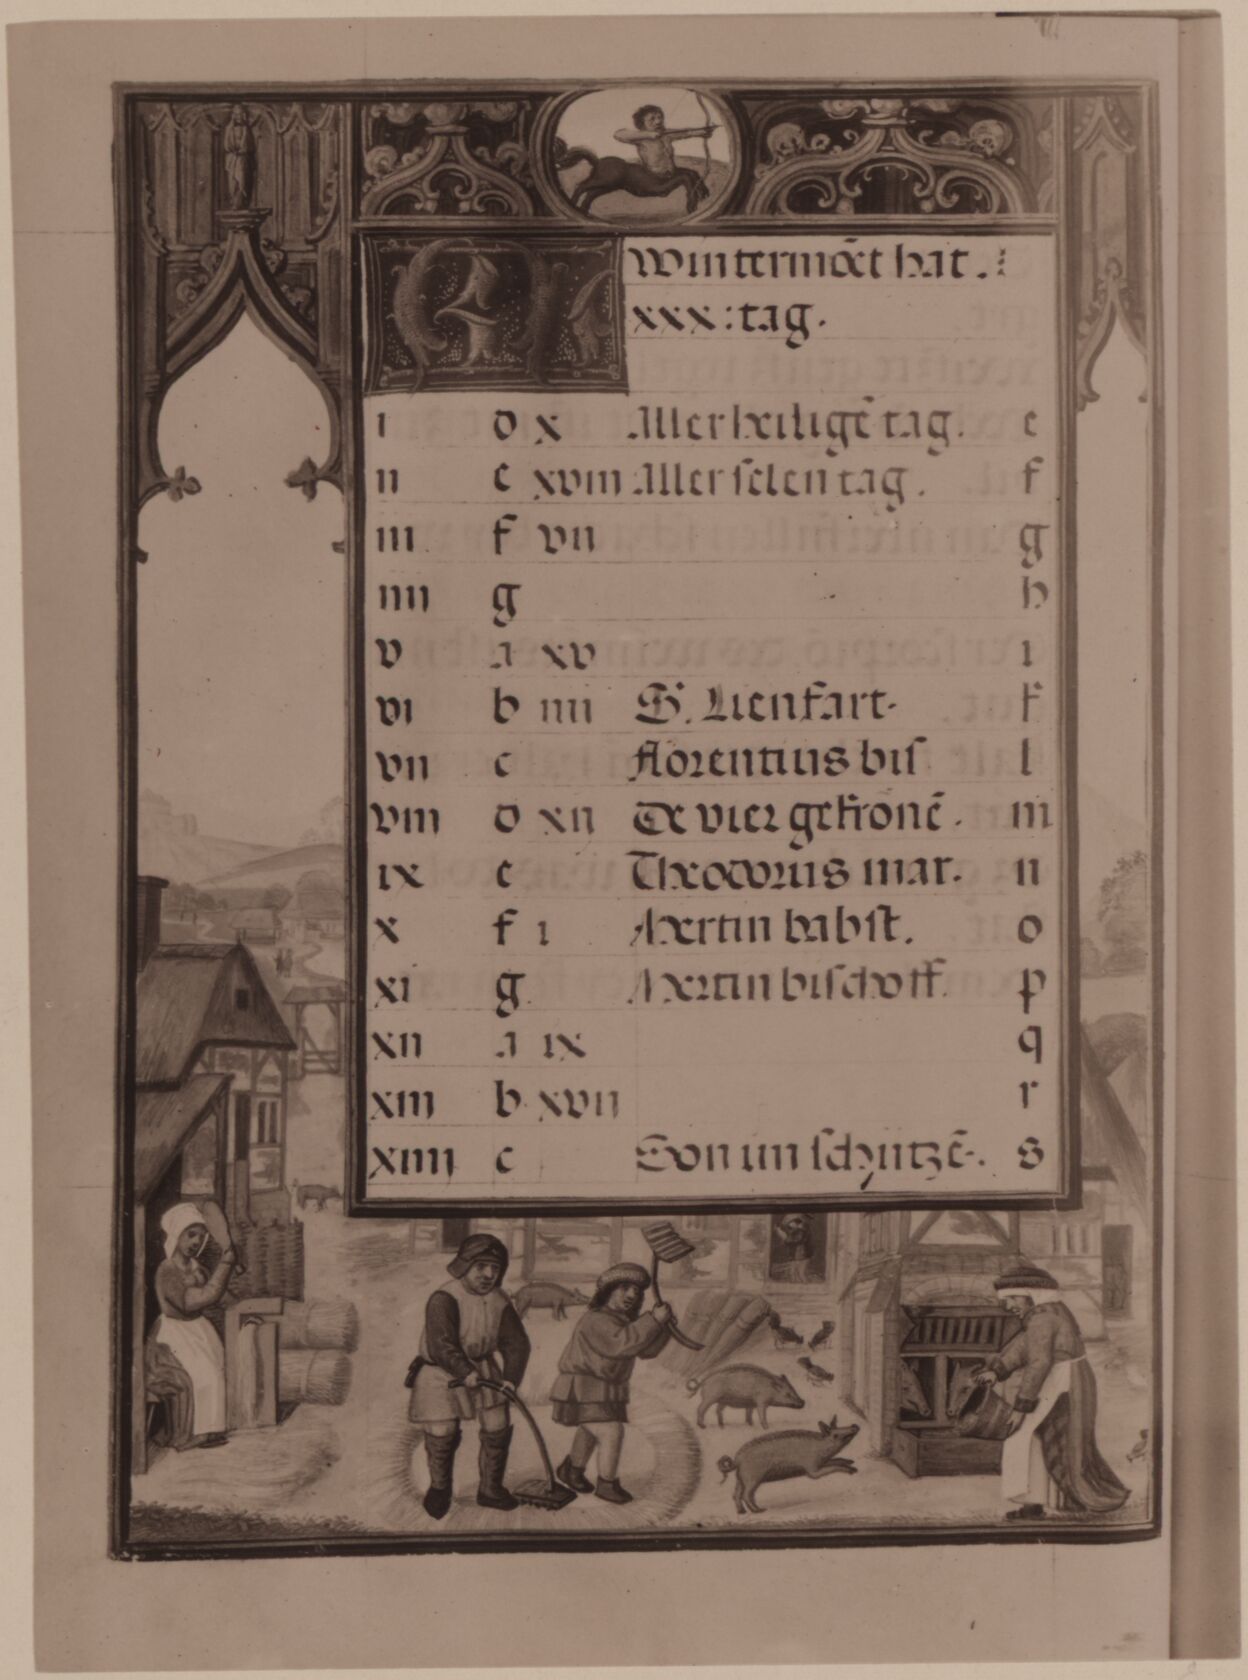 KL Wintermōet hat.
xxx: tag.
i d x Aller heiligē tag. e
ii e xviii Aller selen tag. f
iii f vii g
iiii g h
v a xv i
vi b iiii S. Lienhart. k
vii c florentius bis l
viii d xii De vier gekrōnē. m
ix e Theodorus mar. n
x f i Mertin babst. o
xi g Mertin bischoff. p
xii a ix q
xiii b xvii r
xiiii c Son im schützē. s